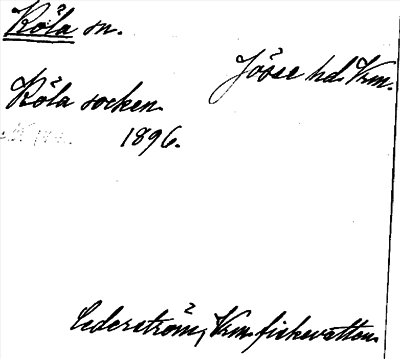 Köla sn.
Jösse hd. Vrm.
Köla socken.
1896.
Cederström, Vrm. fiskevatten.